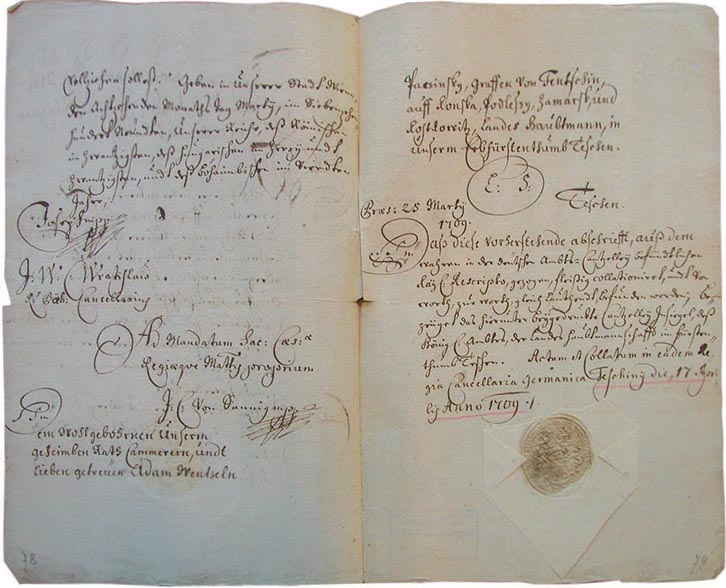 vollziehen sollest. Geben in Unserer Stadt Wienn
den Achtzehenden Monaths Tag Marty, im Siebenzehen
hundert Neundten, Unserer Reiche, deß Römischen
im zwantzigsten, deß Hungarischen im zwey und
zwantzigsten, und deß Böhaimbischen im Vierdten
Jahre,
Joseph
J. W. C. Wratislaw
R. Boh: Cancellarius
Ad Mandatum Sac: Cæs:æ
Regiæque Matty, proprium
J. C. Von
Dem Wohlgebohrnen Unserm
geheimben Rath Cammerern, undt
lieben getreuen Adam Wentzeln
78
Paczinsky, Graffen von Tentschin,
auff Konska, Podlesy, Zamarsk, und
Kostkowitz, Landes Haubtmann, in
Unserm Ebfürstenthumb Teschen.
L: S:
Teschen.
Præs: 25 Marty
1709.
Daß diese vorherstehende abschrifft, auß dem
wahren in der deutschen Ambts-Cantzelley befindlichen
Kay: Rescripto, gezogen, fleißig collationiret, undt von
worth zu worth gleich lauthendt befunden worden, Be-
zeüget das hierunter beygedruckte Cantzelley Insigel, deß
König: Ambtes, der Landes Haubtmannschafft im Fürsten-
thumb Teschen. Actum et Collatum in eadem Re-
gia Cancellaria Germanica Teschiny die 17 Apri-
lis Anno 1709.
79